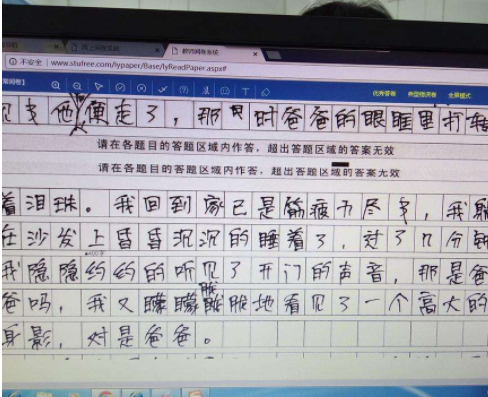 网上阅卷系统
教师阅卷系统
不安全 | www.stufree.com/lypaper/Base/lyReadPaper.aspx#
优秀答卷 典型错误卷 全屏模式
他便走了，那只时爸爸的眼眶里打转
请在各题目的答题区域内作答，超出答题区域的答案无效
请在各题目的答题区域内作答，超出答题区域的答案无效
着泪珠。我回到家已是筋疲力尽了，我躺
在沙发上昏昏沉沉的睡着了，过了几分钟
我隐隐约约的听见了开门的声音，那是爸
爸吗，我又朦朦胧胧地看见了一个高大的
身影，对是爸爸。